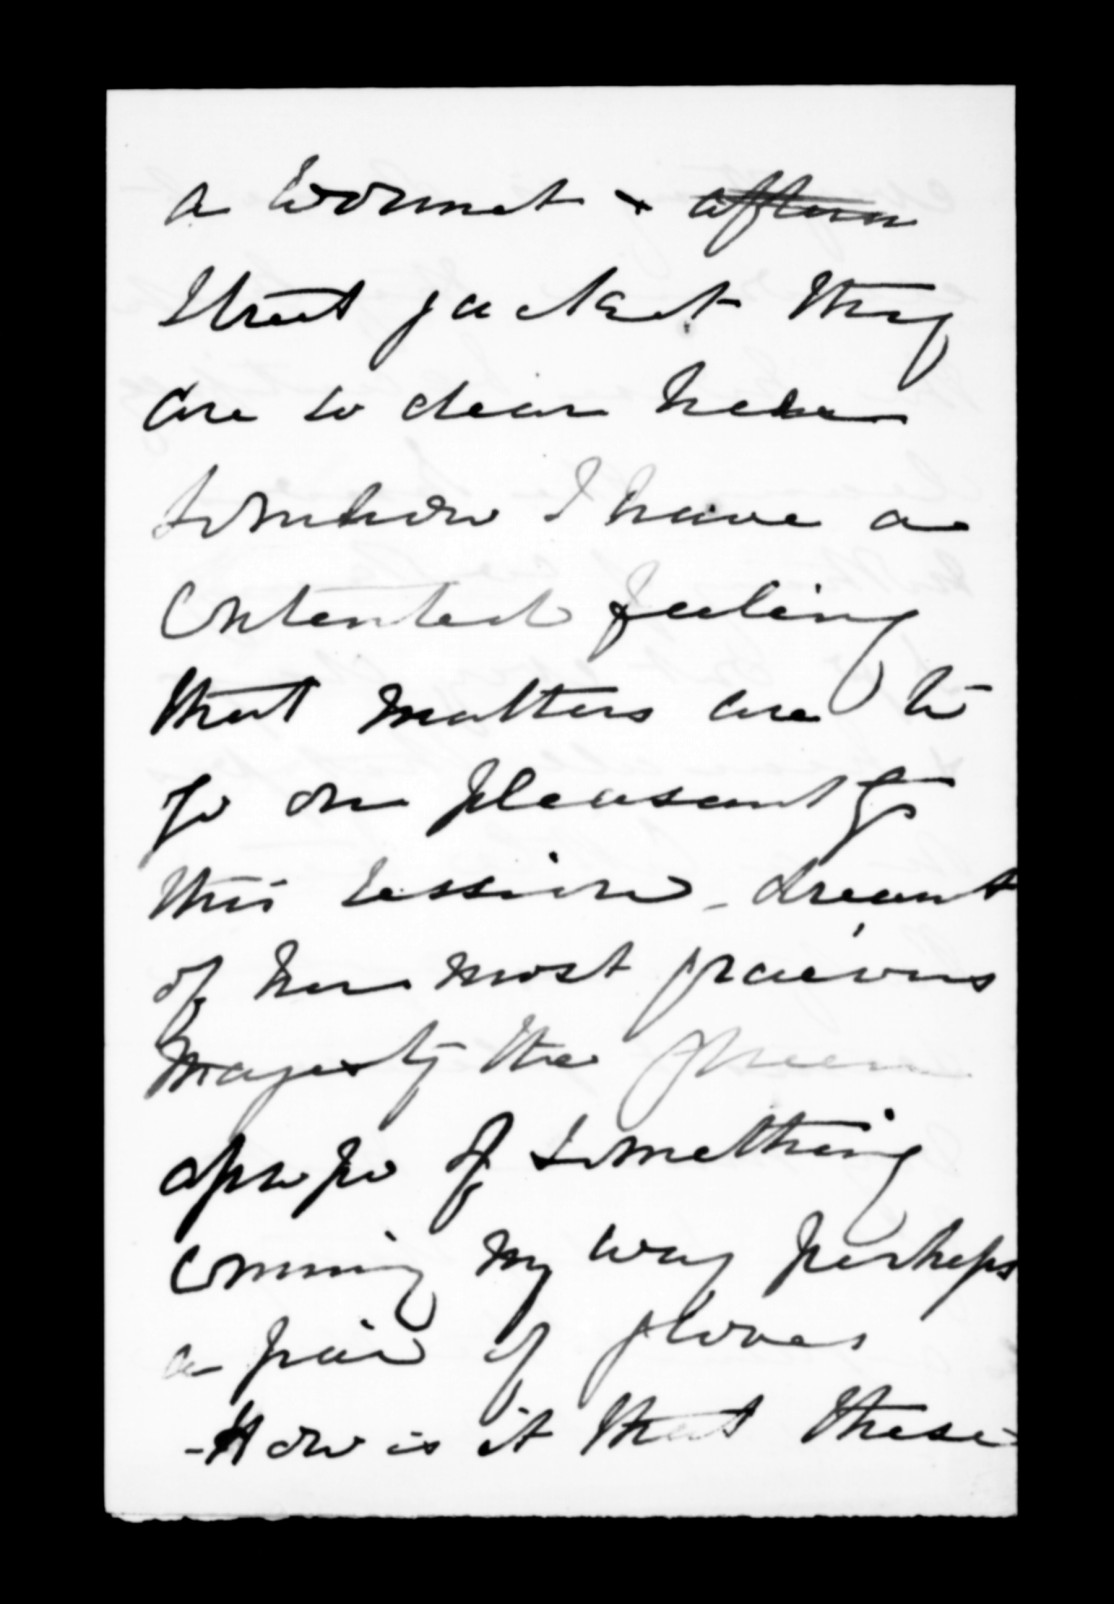 a bonnet & aftern
Street jacket They
are so dear here
Somhow I have a
Contented feeling
that matters are to
go on pleasantly
this session - dreamt
of her most gracious
Majesty the Queen
apropo of something
coming my way perhaps
a pair of gloves
- How is it that these